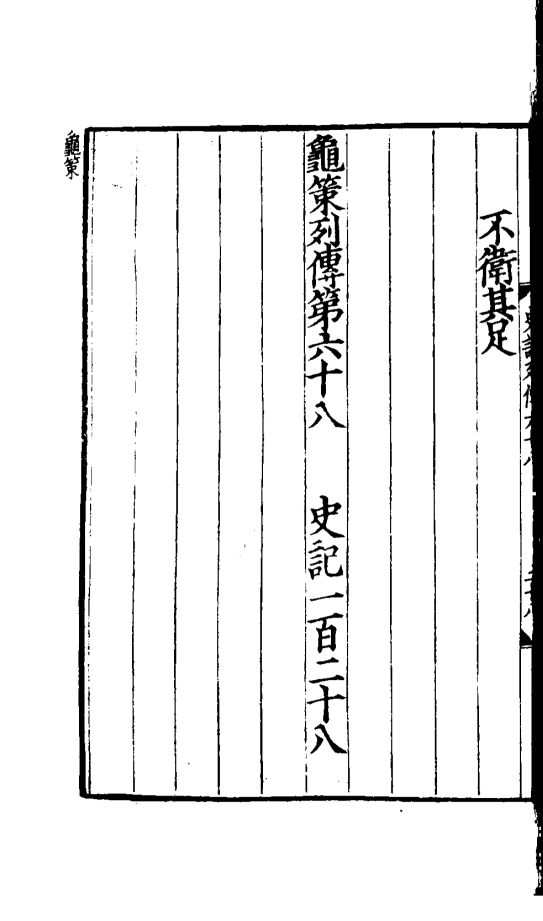 不衛其足
龜策列傳第六十八　　史記一百二十八
龜策